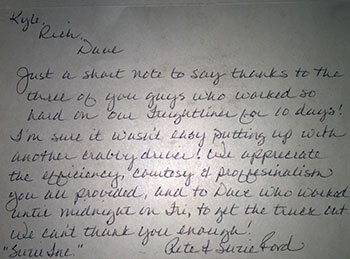 Kyle,
Rich,
Dave
Just a short note to say thanks to the
three of you guys who worked so
hard on our Freightliner for 10 days!
I'm sure it wasn't easy putting up with
another crabby driver! We appreciate
the efficiency, courtesy & proffesinalism
you all provided, and to Dave who worked
until midnight on Fri, to get the truck out
we can't thank you enough!
"Suzie Inc." Pete & Suzie Ford